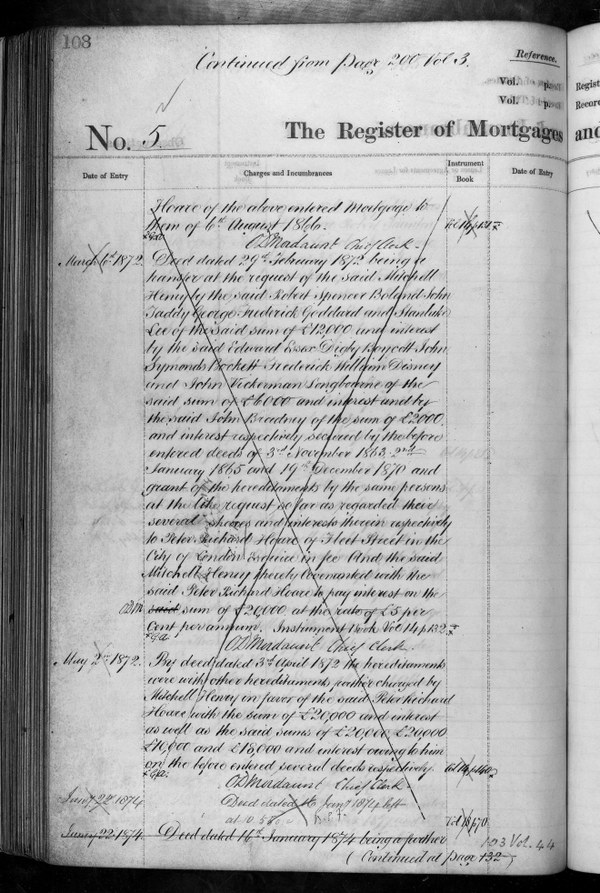 103
Continued from page 200 Vol 3.
Reference.
Vol. p.
Vol. p.
No. 5. The Register of Mortgages
and
Regist
Recor
Date of Entry
Charges and Incumbrances
Instrument Book
Date of Entry
Hoare of the above entered Mortgage to
them of 6th August 1866.
O D Mordaunt Chief Clerk.
March 6th 1872. Deed dated 29th February 1872 being a
transfer at the request of the said Mitchell
Henry by the said Robert Spencer Boland John
Taddy George Frederick Goddard and Stanlake
Lee of the said sum of £12,000 and interest
by the said Edward Essex Digby Boycott John
Symonds Bockett Frederick William Disney
and John Vickerman Longbourne of the
said sum of £6000 and interest and by
the said John Broadney of the sum of £2000
and interest respectively secured by the before
entered deeds of 3rd November 1863 2nd
January 1865 and 19th December 1870 and
grant of the hereditaments by the same persons
at the like request so far as regarded their
several shares and interests therein respectively
to Peter Richard Hoare of Fleet Street in the
City of London Esquire in fee And the said
Mitchell Henry thereby Covenanted with the
said Peter Richard Hoare to pay interest on the
ODM said sum of £20,000 at the rate of £5 per
Cent per annum. Instrument Book Vol 14 p 132
O D Mordaunt Chief Clerk.
May 2nd 1872. By deed dated 3rd April 1872 the hereditaments
were with other hereditaments further charged by
Mitchell Henry in favor of the said Peter Richard
Hoare with the sum of £20,000 and interest
as well as the said sums of £20,000 £20,000
£10,000 and £15,000 and interest owing to him
on the before entered several deeds respectively.
O D Mordaunt Chief Clerk.
Jany 22nd 1874 Deed dated 16 Jany 1874 left
at
Jany 22. 1874. Deed dated 16th January 1874 being a further
103 Vol. 44
(Continued at page 132)